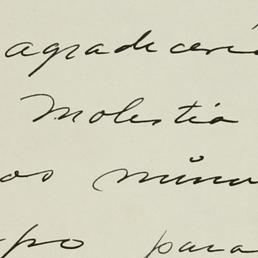 agradecerí
Molestia
os minu
po para